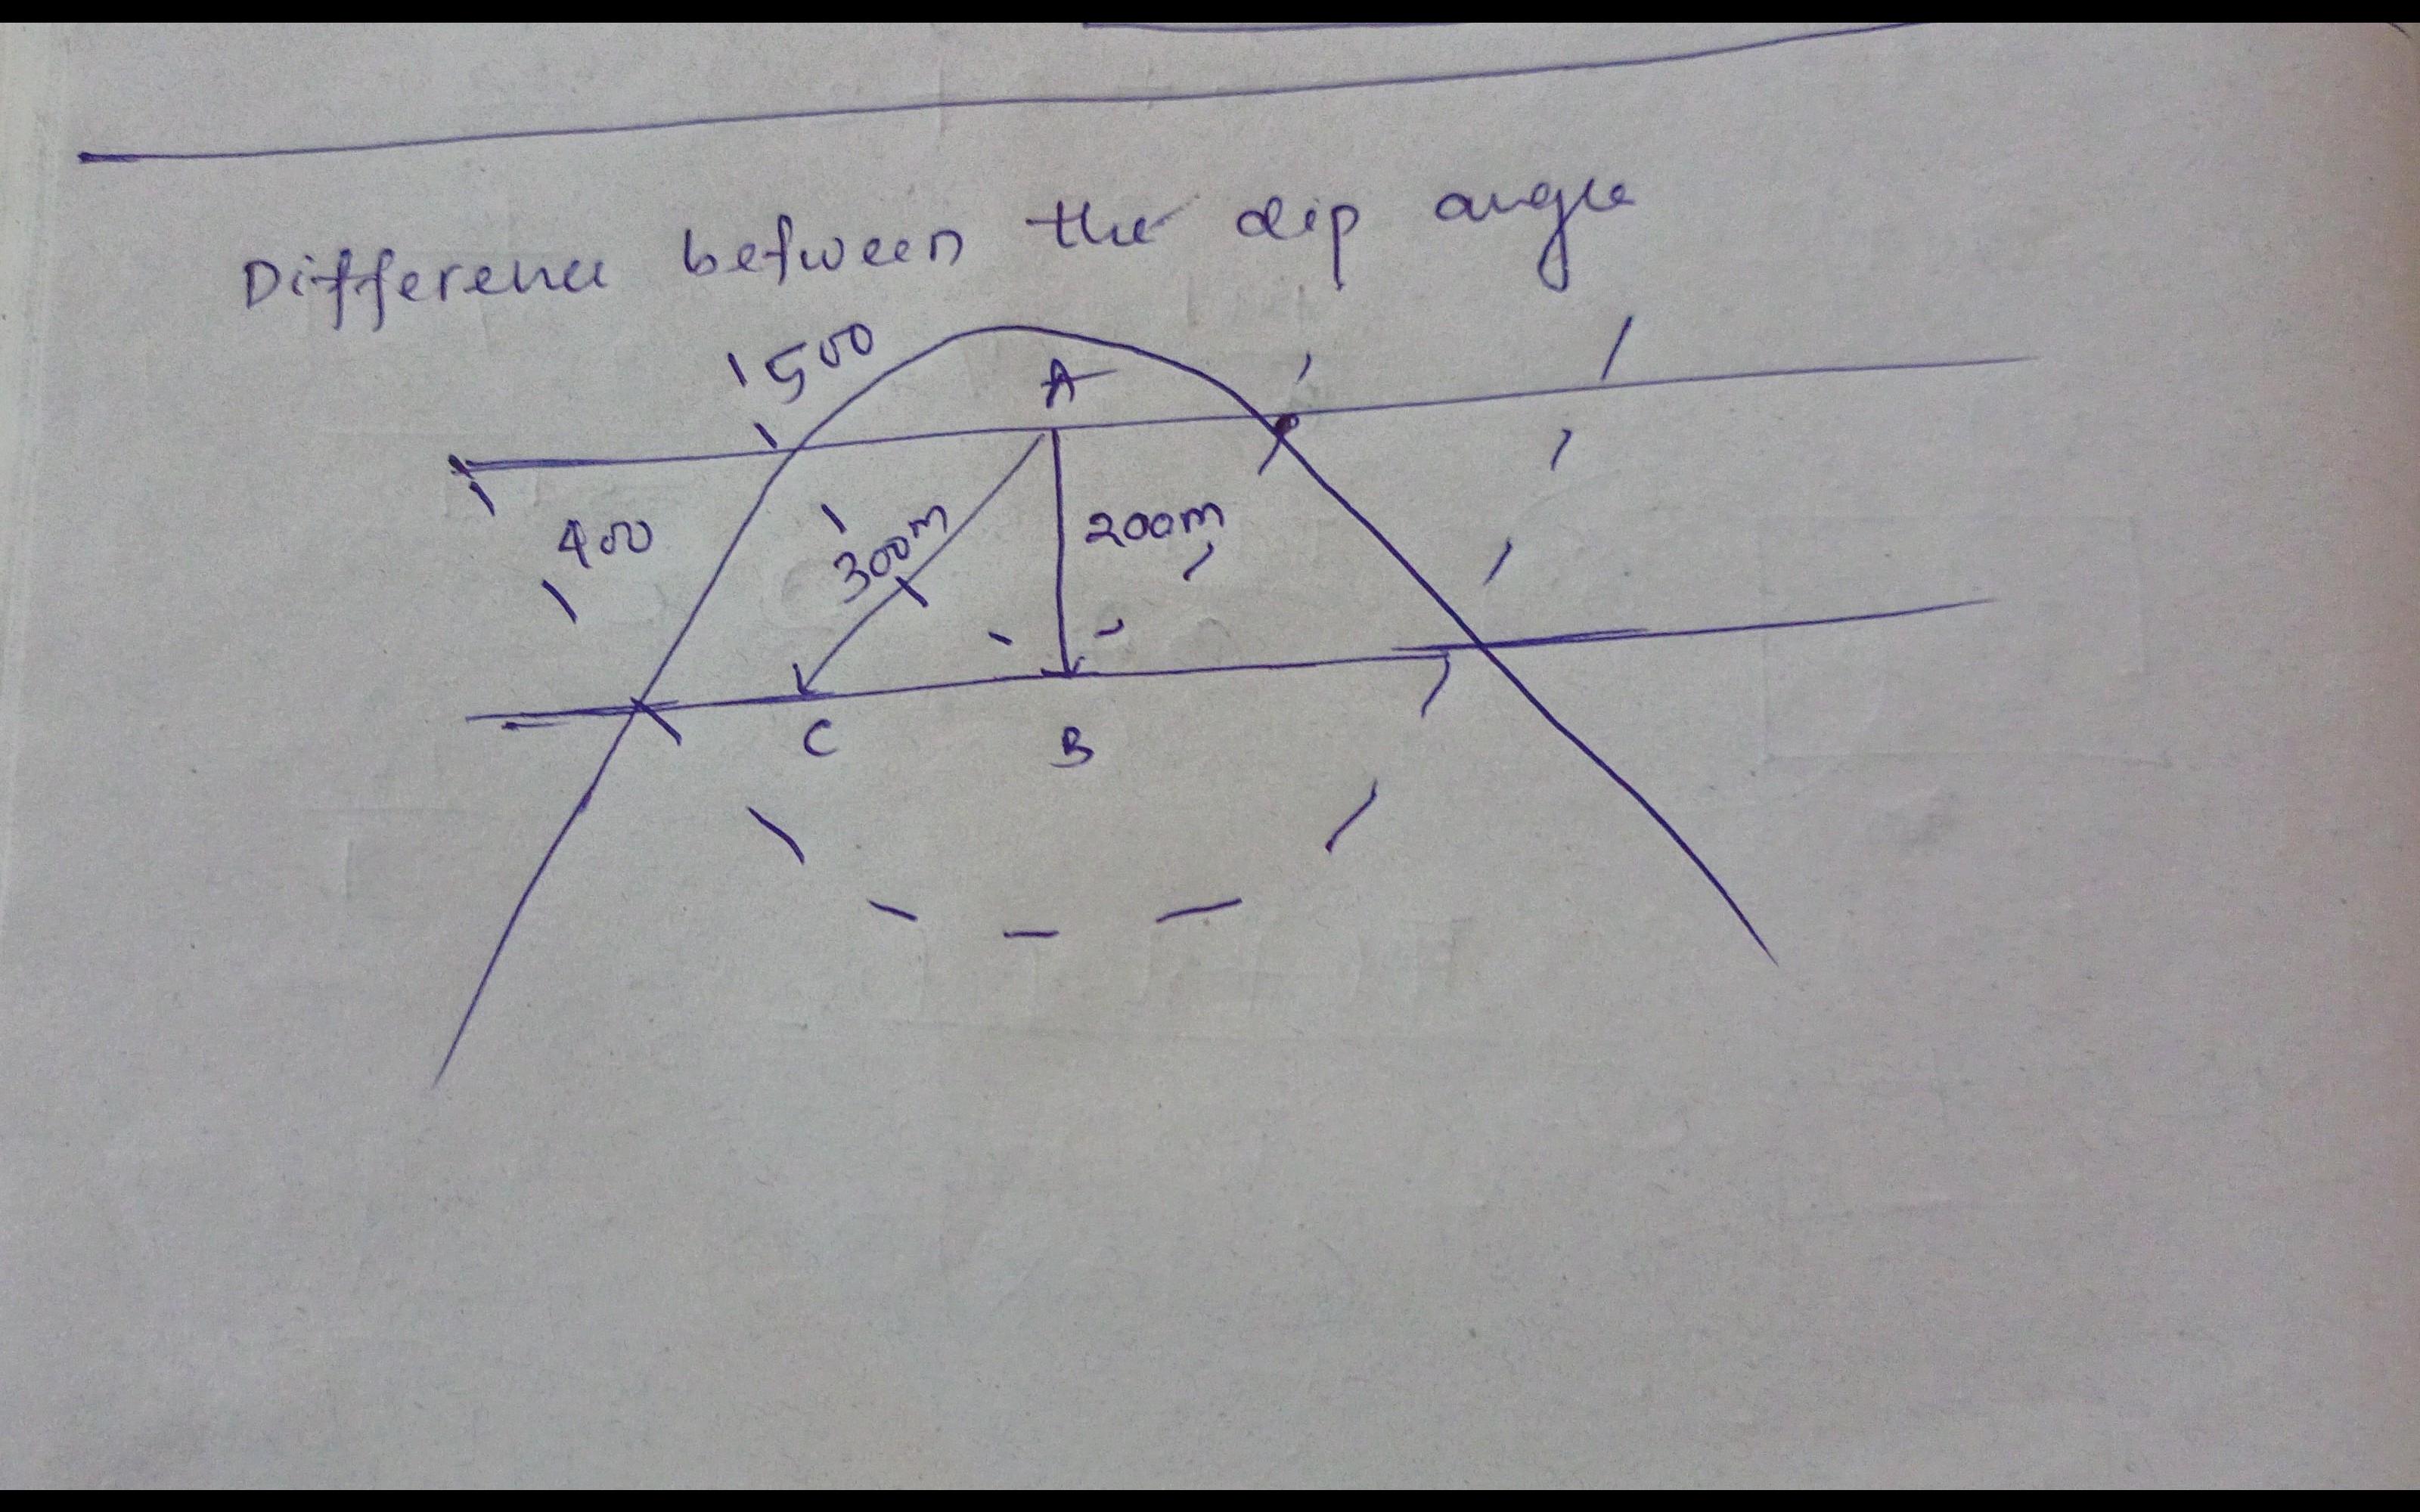 Difference between the dip angle
500
A
400
300m
200m
C
B